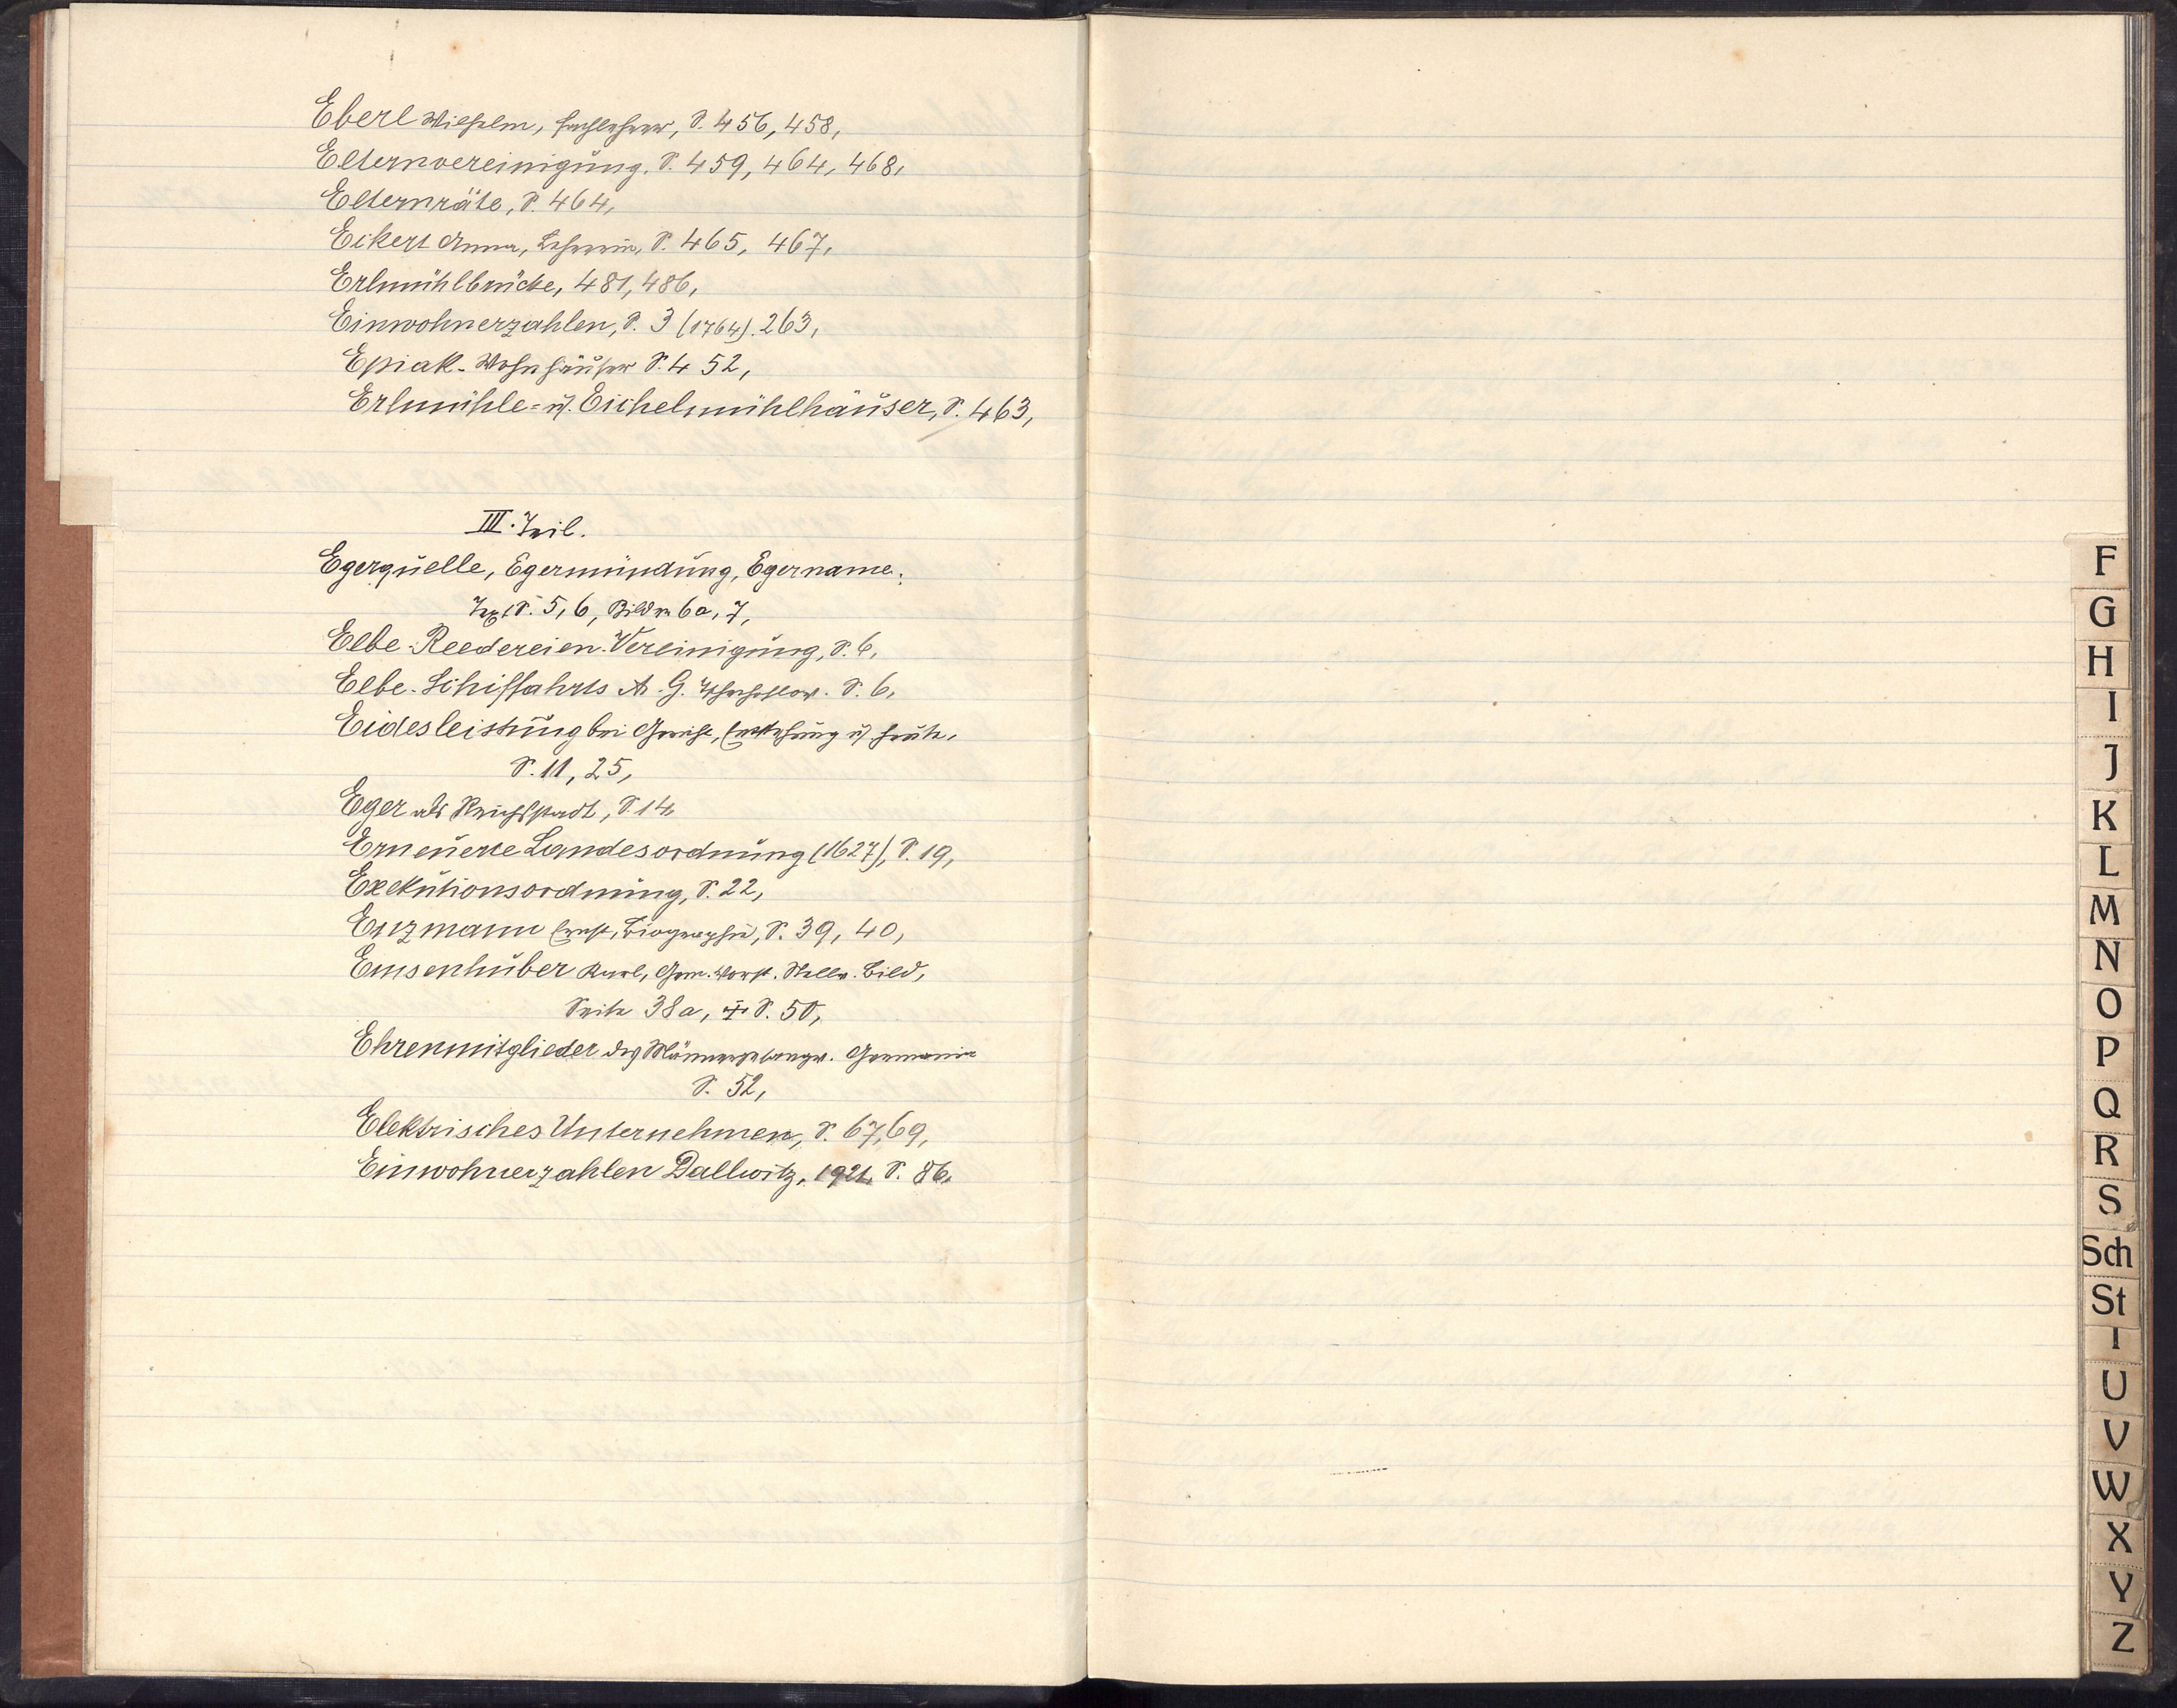 Eberl Wilhelm, Fachlehrer, S. 456, 458,
Elternvereinigung. S. 459, 464, 468,
Elternräte, S. 464,
Eckert Anna, Lehrerin, S. 465, 467,
Erlmühlbrücke, 481, 486,
Einwohnerzahlen, S. 3 (1764). 263,
Epiak-Wohnhäuser S. 452,
Erlmühle- u. Eichelmühlhäuser, S. 463,
III. Teil.
Egerquelle, Egermündung, Egername.
Text S. 5, 6, Bilder 6a, 7,
Elbe-Reedereien-Vereinigung, S. 6,
Elbe-Schiffahrts A. G. Tschechoslow. S. 6,
Eidesleistung bei Gericht, Entstehung u.
S. 11, 25,
Eger als Reichsstadt, S. 14,
Erneuerte Landesordnung (1627), S. 19,
Exekutionsordnung, S. 22,
Enzmann Ernst, Biographie, S. 39, 40,
Emsenhuber Karl, Gem. Vorst. Stellv. Bild,
Seite 38a, S. 50,
Ehrenmitglieder des Männergesangv. Germania
S. 52,
Elektrisches Unternehmen, S. 67, 69,
Einwohnerzahlen Dallwitz, 1921, S. 86,
F
G
H
I
J
K
L
M
N
O
P
Q
R
S
Sch
St
T
U
V
W
X
Y
Z